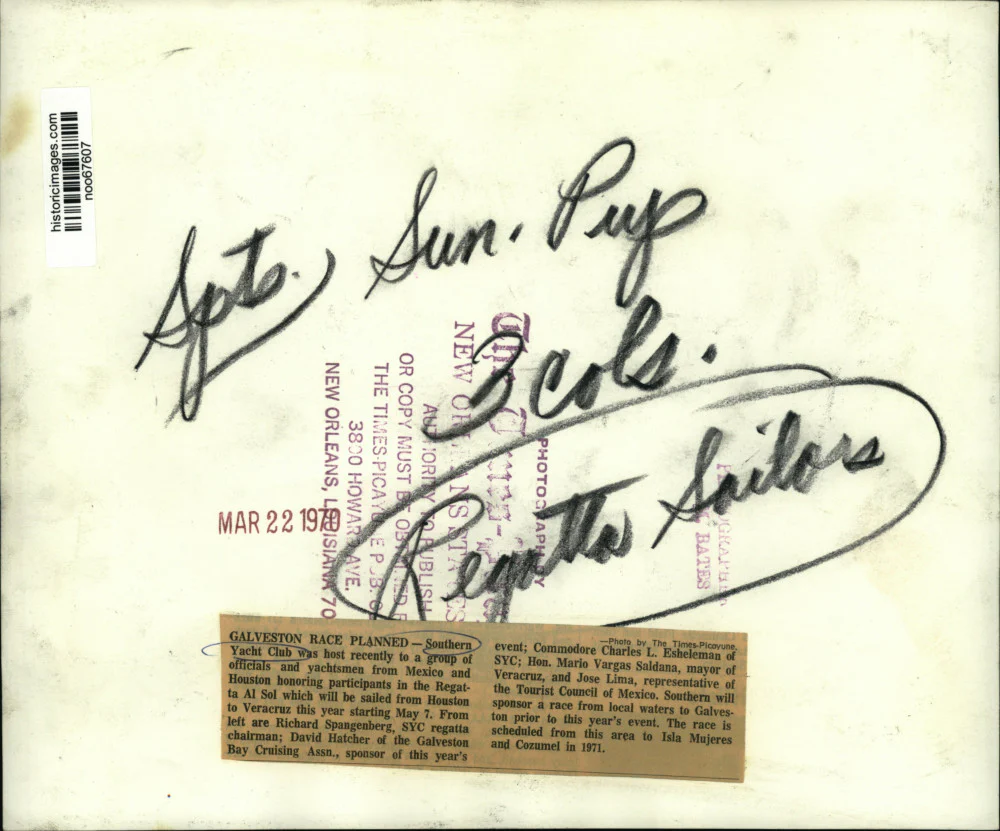 historicimages.com
noo67607
Spts.
Sun. Pup
3 cols.
Regatta Sailors
MAR 22 1970
PHOTOGRAPH BY
The Times-
NEW ORL NS STATES
AUTHORITY TO PUBLISH
OR COPY MUST BE OBTAINED
THE TIMES-PICAYUNE PUB.
3800 HOWARD AVE.
NEW ORLEANS, LOUISIANA 70
BATES
GALVESTON RACE PLANNED — Southern
Yacht Club was host recently to a group of
officials and yachtsmen from Mexico and
Houston honoring participants in the Regat-
ta Al Sol which will be sailed from Houston
to Veracruz this year starting May 7. From
left are Richard Spangenberg, SYC regatta
chairman; David Hatcher of the Galveston
Bay Cruising Assn., sponsor of this year's
—Photo by The Times-Picayune.
event; Commodore Charles L. Esheleman of
SYC; Hon. Mario Vargas Saldana, mayor of
Veracruz, and Jose Lima, representative of
the Tourist Council of Mexico. Southern will
sponsor a race from local waters to Galves-
ton prior to this year's event. The race is
scheduled from this area to Isla Mujeres
and Cozumel in 1971.